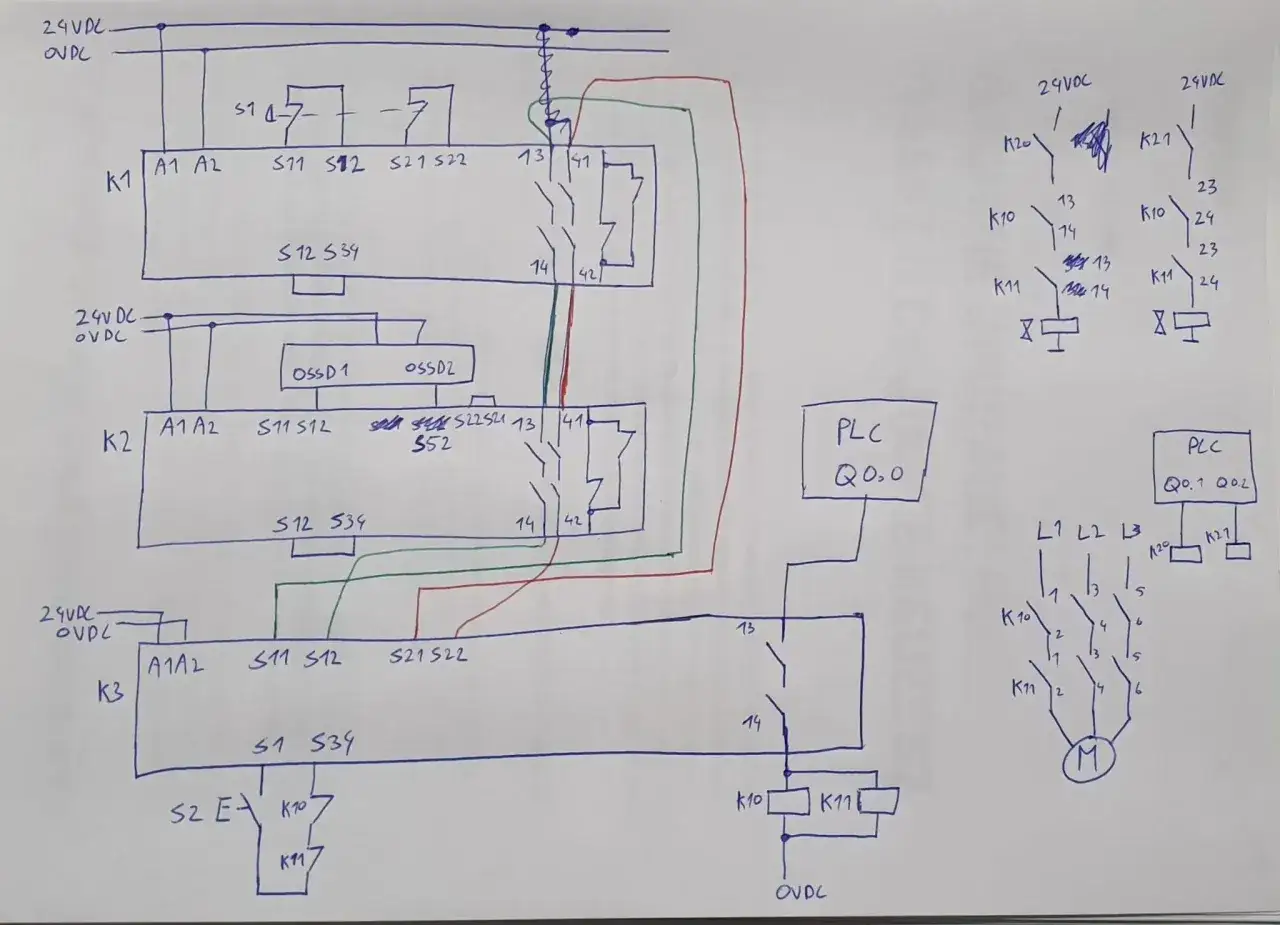 24VDC
0VDC
S1
13 41
A1 A2 S11 S12 S21 S22
K1
S12 S34 14 42
24VDC
0VDC
OSSD1 OSSD2
A1 A2 S11 S12 S22 S21 13 41
K2 S52
S12 S34 14 42
24VDC
0VDC
A1 A2 S11 S12 S21 S22 13
K3
14
S1 S34
S2 K10
K11
PLC
Q0.0
K10 K11
0VDC
24VDC 24VDC
K20 K21
K10 13 14 K10 23 24
K11 13 14 K11 23 24
PLC
Q0.1 Q0.2
K20 K21
L1 L2 L3
K10 1 3 5
2 4 6
K11 1 3 5
2 4 6
M